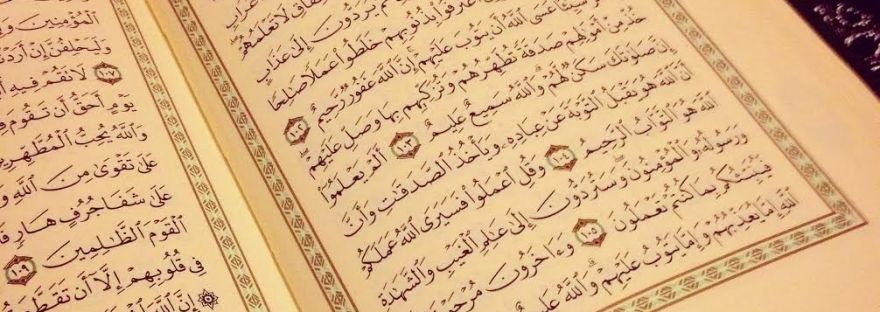 ٱلنِّفَاقِ لَا تَعْلَمُهُمْ
يُرَدُّونَ إِلَىٰ عَذَابٍ
ٱعْتَرَفُوا۟ بِذُنُوبِهِمْ خَلَطُوا۟ عَمَلًا صَٰلِحًا
سَيِّئًا عَسَى ٱللَّهُ أَن يَتُوبَ عَلَيْهِمْ إِنَّ ٱللَّهَ غَفُورٌ رَّحِيمٌ ١٠٢
خُذْ مِنْ أَمْوَٰلِهِمْ صَدَقَةً تُطَهِّرُهُمْ وَتُزَكِّيهِم بِهَا وَصَلِّ عَلَيْهِمْ
إِنَّ صَلَوٰتَكَ سَكَنٌ لَّهُمْ وَٱللَّهُ سَمِيعٌ عَلِيمٌ ١٠٣ أَلَمْ يَعْلَمُوٓا۟
أَنَّ ٱللَّهَ هُوَ يَقْبَلُ ٱلتَّوْبَةَ عَنْ عِبَادِهِۦ وَيَأْخُذُ ٱلصَّدَقَٰتِ وَأَنَّ
ٱللَّهَ هُوَ ٱلتَّوَّابُ ٱلرَّحِيمُ ١٠٤ وَقُلِ ٱعْمَلُوا۟ فَسَيَرَى ٱللَّهُ عَمَلَكُمْ
وَرَسُولُهُۥ وَٱلْمُؤْمِنُونَ وَسَتُرَدُّونَ إِلَىٰ عَٰلِمِ ٱلْغَيْبِ وَٱلشَّهَٰدَةِ
فَيُنَبِّئُكُم بِمَا كُنتُمْ تَعْمَلُونَ ١٠٥ وَءَاخَرُونَ
ٱللَّهِ إِمَّا يُعَذِّبُهُمْ وَإِمَّا يَتُوبُ عَلَيْهِمْ وَٱللَّهُ
ٱلْمُؤْمِنِينَ
وَلَيَحْلِفُنَّ إِنْ أَرَدْنَا
١٠٧ لَا تَقُمْ فِيهِ
يَوْمٍ أَحَقُّ أَن تَقُومَ
وَٱللَّهُ يُحِبُّ ٱلْمُطَّهِّرِينَ
عَلَىٰ تَقْوَىٰ مِنَ ٱللَّهِ
عَلَىٰ شَفَا جُرُفٍ هَارٍ
ٱلْقَوْمَ ٱلظَّٰلِمِينَ ١٠٩
فِى قُلُوبِهِمْ إِلَّآ أَن تَقَطَّعَ
۞ إِنَّ ٱللَّهَ